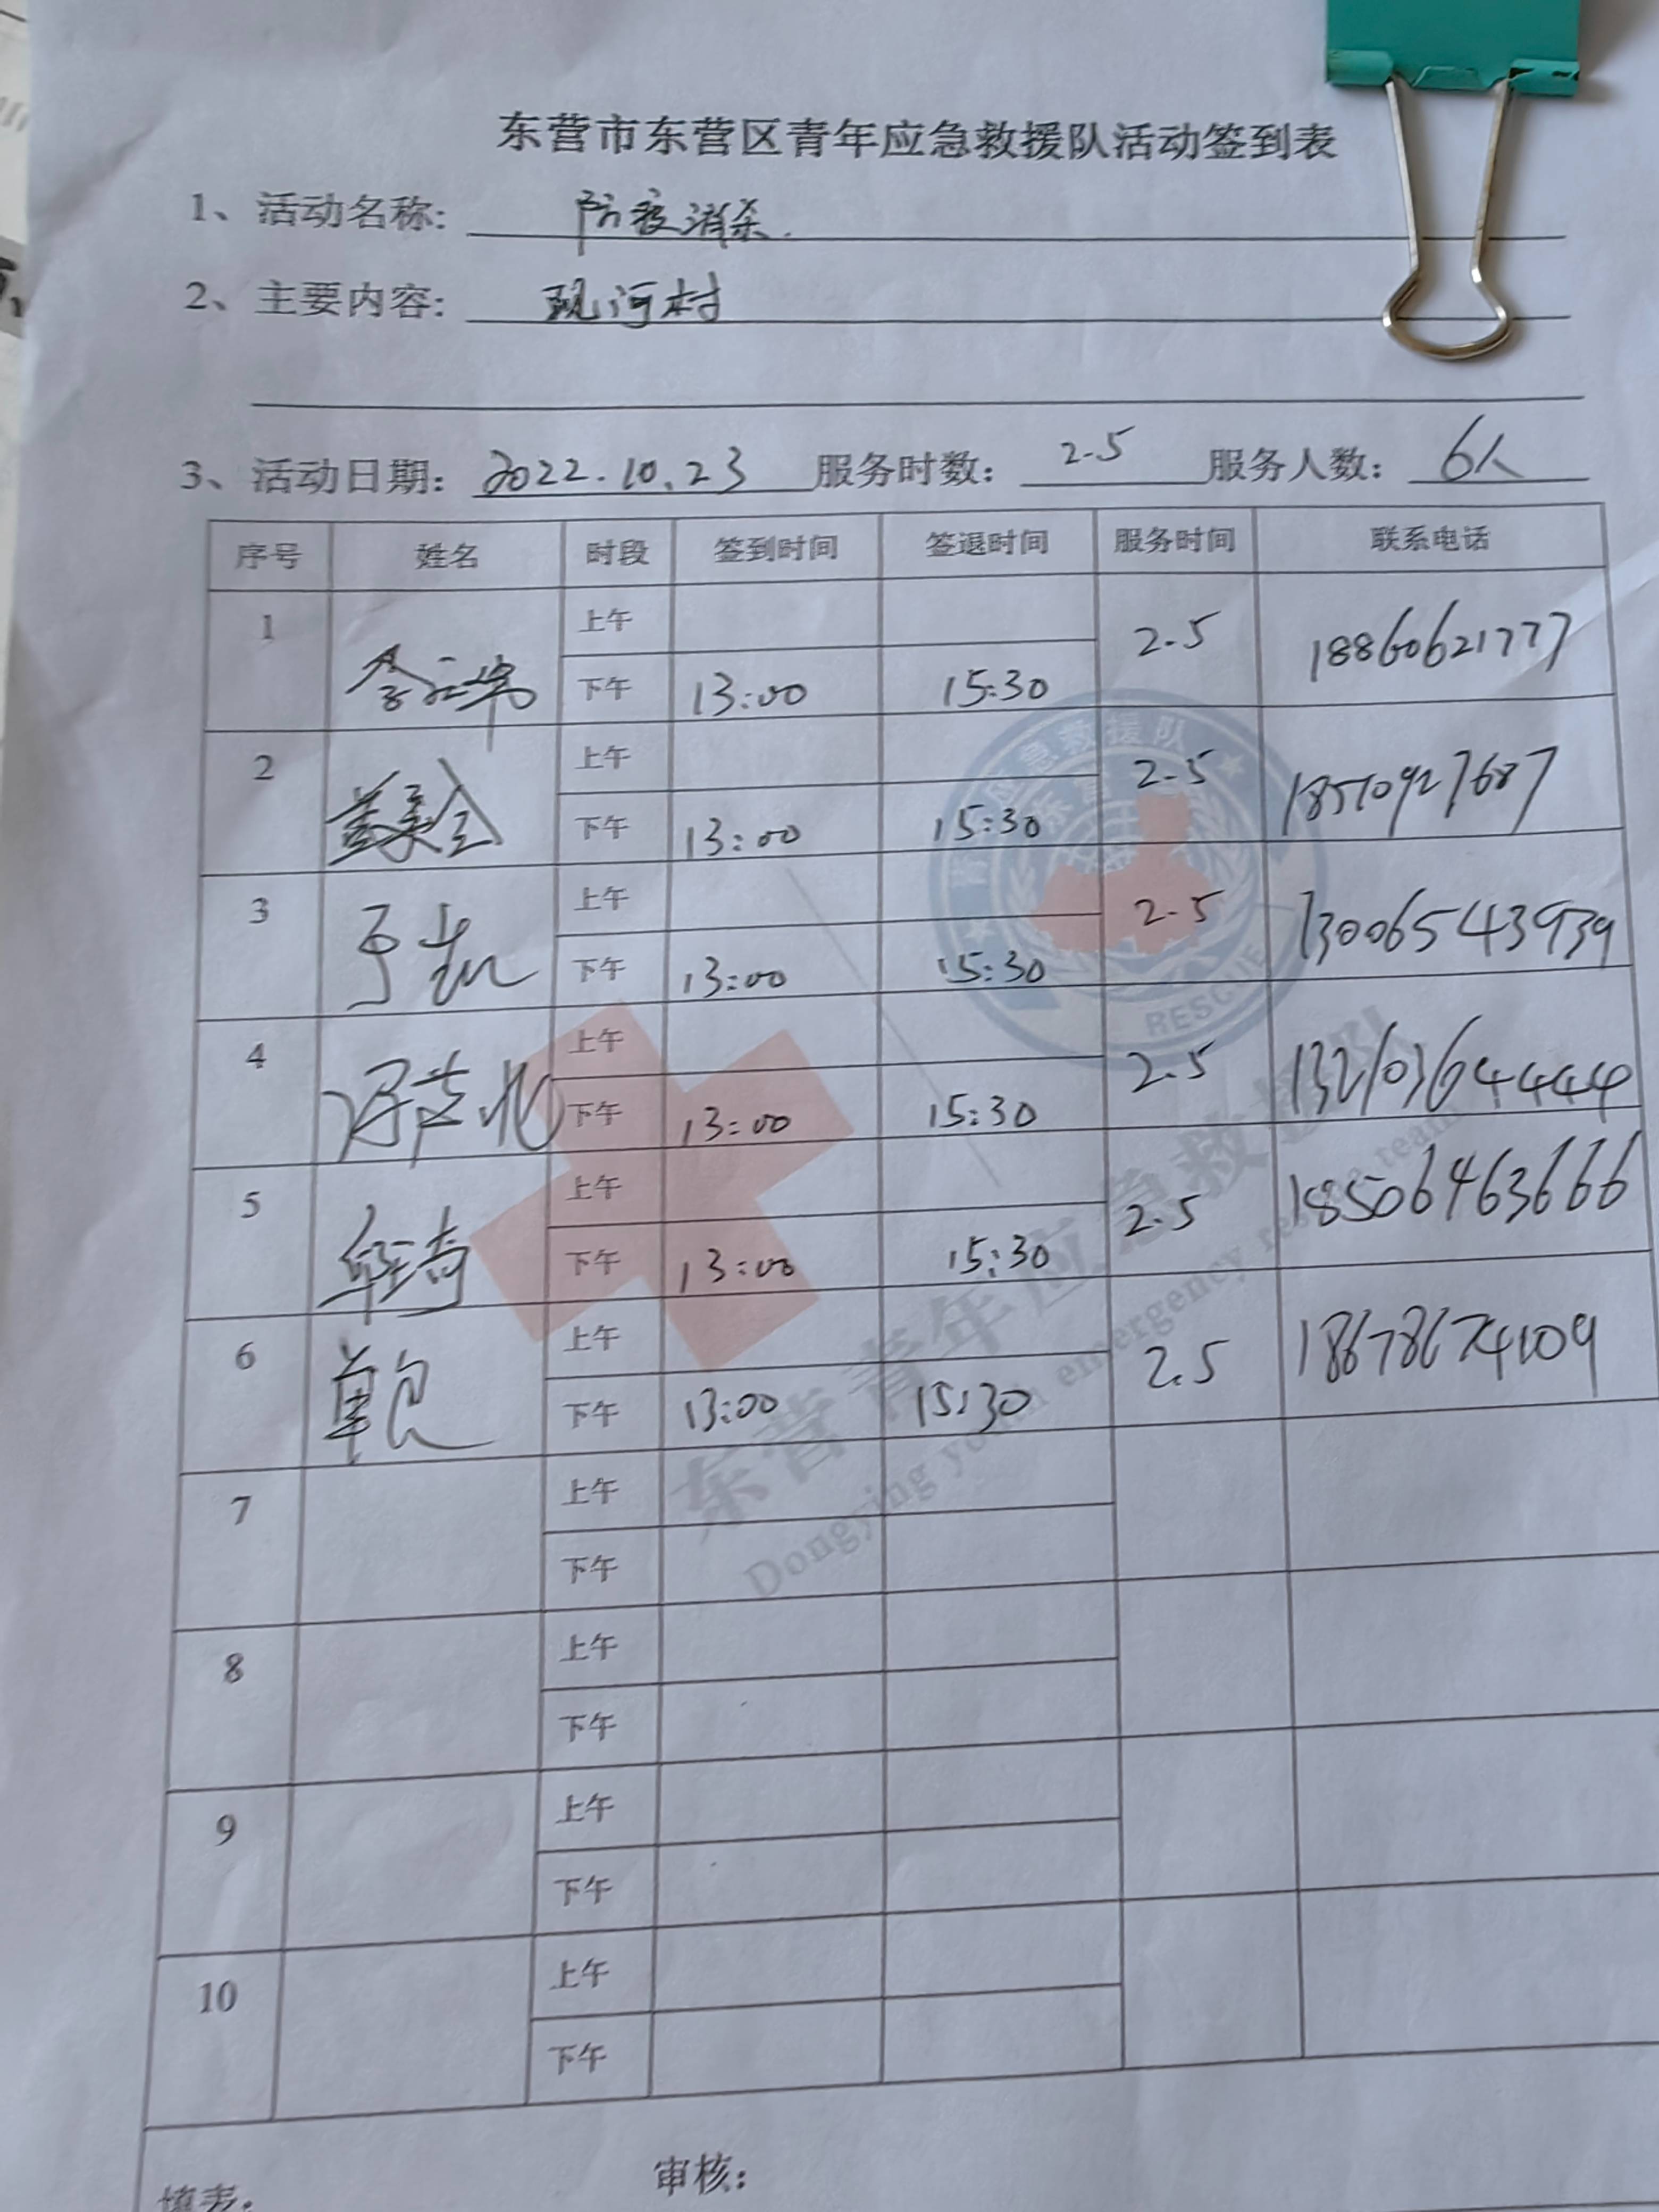 东营市东营区青年应急救援队活动签到表
1、活动名称: 防疫消杀.
2、主要内容: 现河村
3、活动日期: 2022.10.23 服务时数: 2.5 服务人数: 6人
序号 姓名 时段 签到时间 签退时间 服务时间 联系电话
1 上午 2.5 18860621777
下午 13:00 15:30
2 上午 2.5 18510927687
下午 13:00 15:30
3 上午 2.5 13006543939
下午 13:00 15:30
4 上午 2.5 13210364444
下午 13:00 15:30
5 华琦 上午 2.5 18506463666
下午 13:00 15:30
6 上午 2.5 18678674109
下午 13:00 15:30
7 上午
下午
8 上午
下午
9 上午
下午
10 上午
下午
填表: 审核:
RESCUE
东营青年应急救援队
Dongying youth emergency rescue team